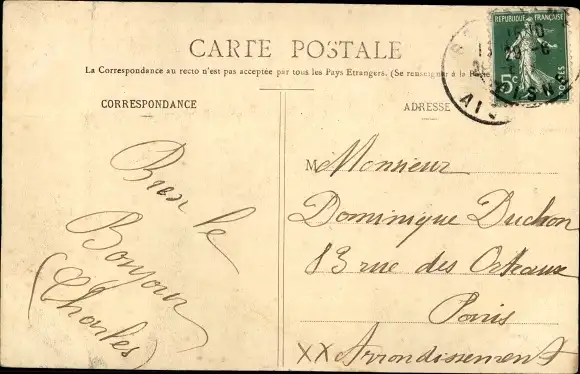 CARTE POSTALE
La Correspondance au recto n'est pas acceptée par tous les Pays Etrangers. (Se renseigner à la Poste
CORRESPONDANCE
Bien le
Bonjour
(Charles)
ADRESSE
M Monsieur
Dominique Duchon
83 rue des Orteaux
Paris
XX Arrondissement
REPUBLIQUE FRANÇAISE
5c
POSTES
AISNE